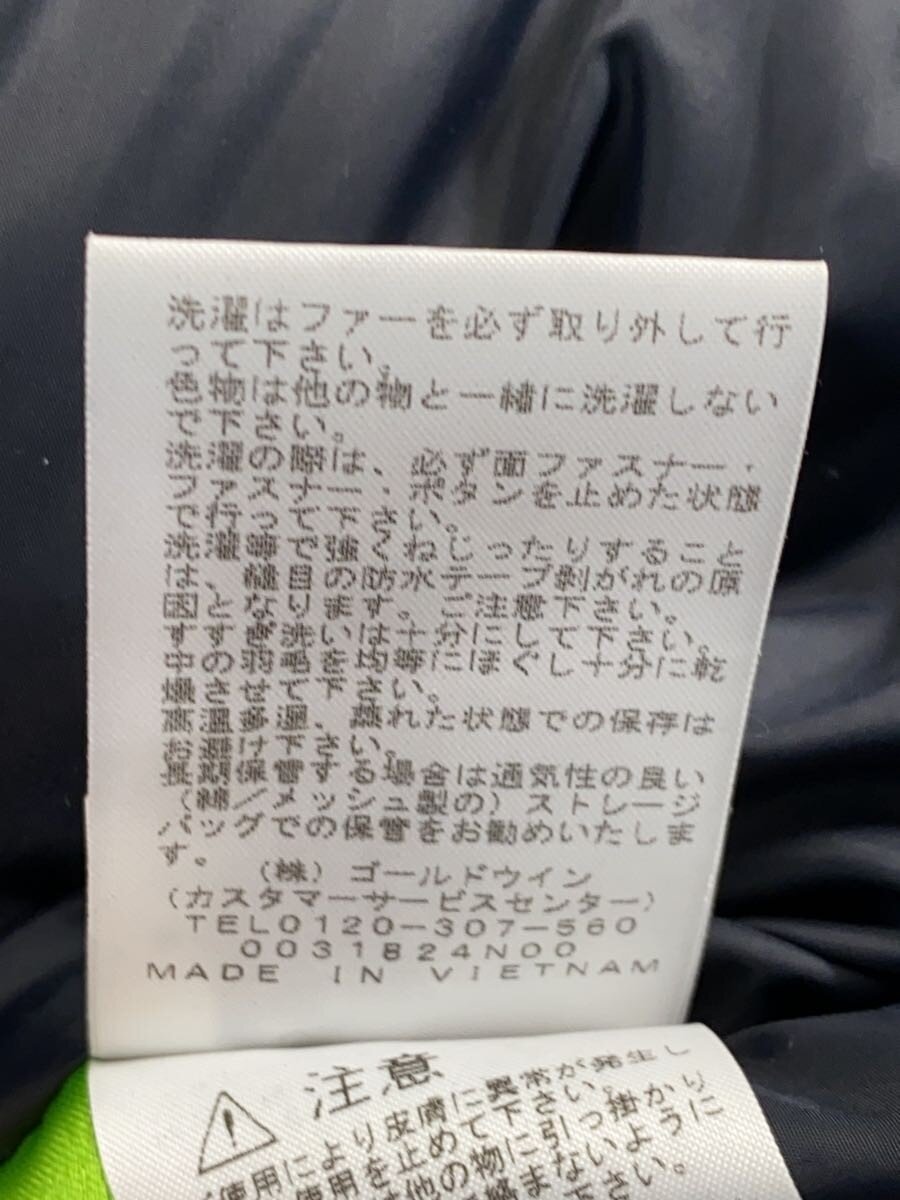 洗濯はファーを必ず取り外して行
って下さい。
色物は他の物と一緒に洗濯しない
で下さい。
洗濯の際は、必ず面ファスナー・
ファスナー・ボタンを止めた状態
で行って下さい。
洗濯等で強くねじったりすること
は、縫目の防水テープ剥がれの原
因となります。ご注意下さい。
すすぎ洗いは十分にして下さい。
中の羽毛を均等にほぐし十分に乾
燥させて下さい。
高温多湿、蒸れた状態での保存は
お避け下さい。
長期保管する場合は通気性の良い
(綿／メッシュ製の)ストレージ
バッグでの保管をお勧めいたしま
す。
(株)ゴールドウイン
(カスタマーサービスセンター)
TEL0120-307-560
0031824N00
MADE IN VIETNAM
注意
使用により皮膚に異常が発生し
使用を止めて下さい。
は他の物に引っ掛かり
絡まないように
下さい。